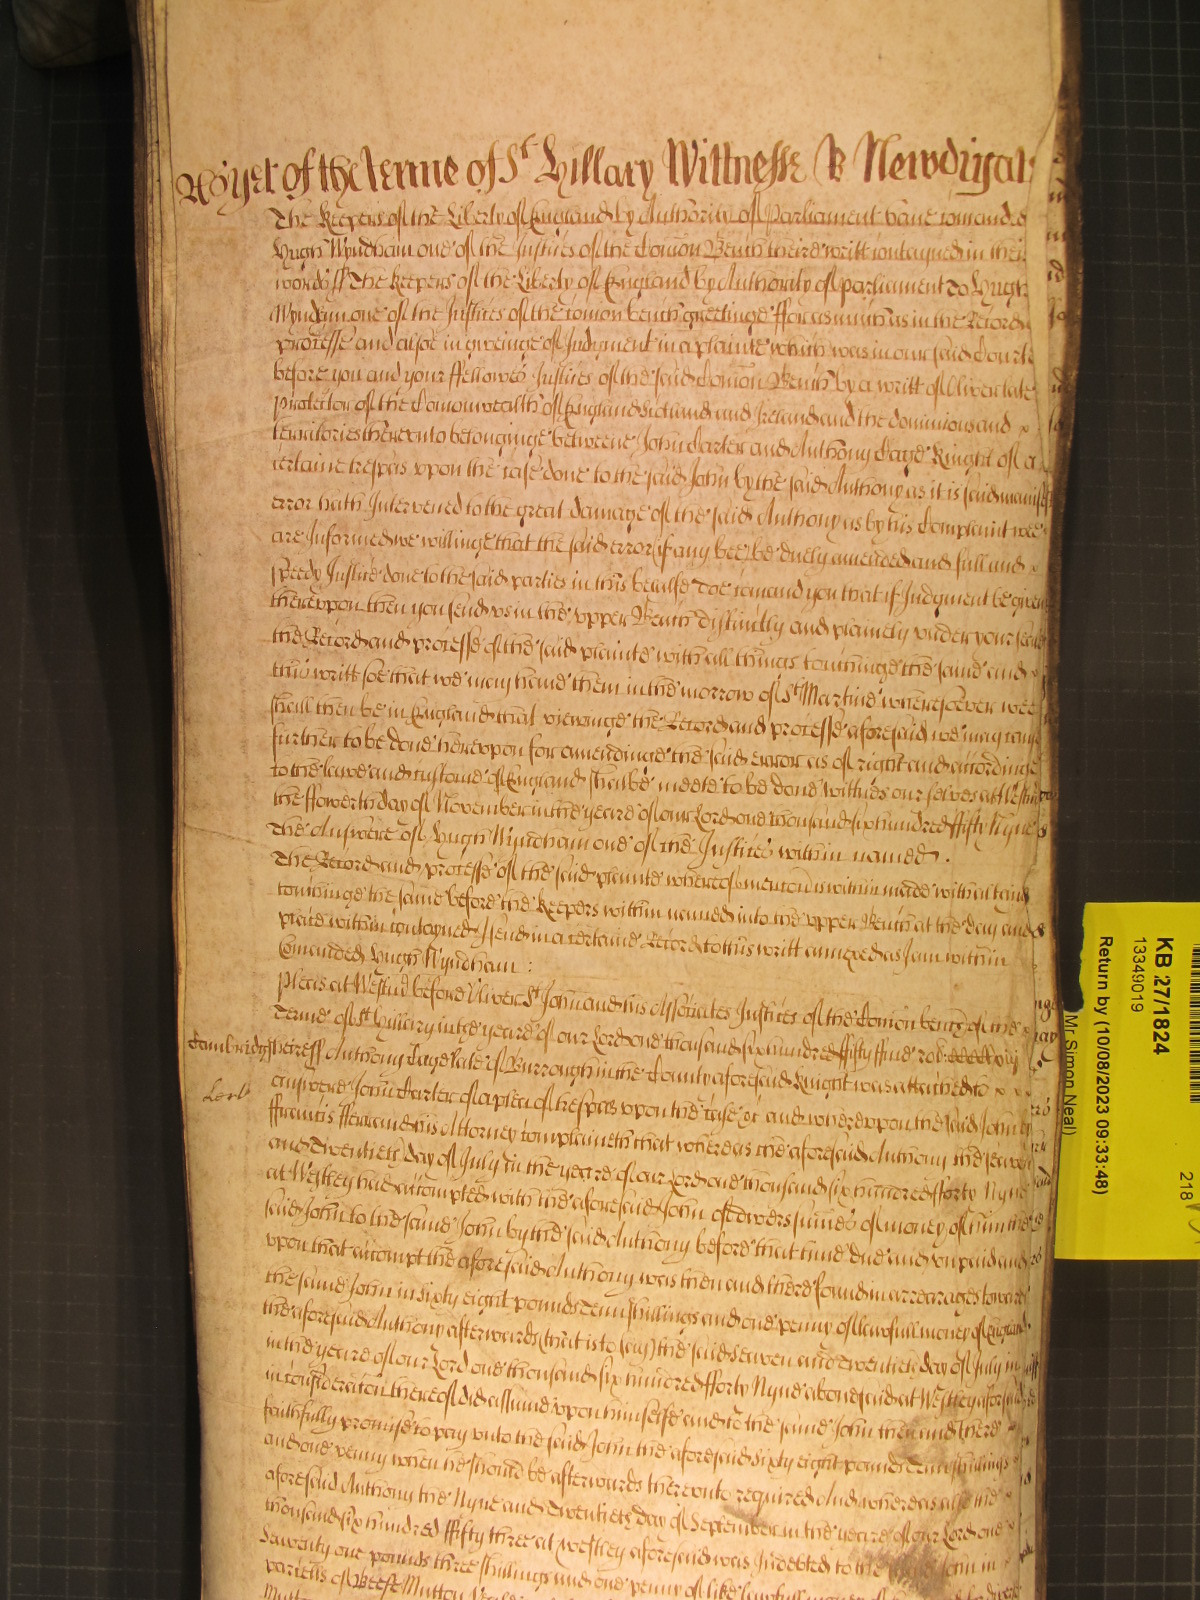 Yet of the terme of St Hillary Wittnesse R Newdigat
The Keepers of the Liberty of England by Authority of Parliament have comanded
Hugh Wyndham one of the Justices of the Comon Bench theire writt conteyned in theis
words ss The Keepers of the Liberty of England by Authority of parliament To Hugh
Wyndham one of the Justices of the comon bench greetinge fforasmuch as in the Record
processe and alsoe in giveinge of Judgment in a plainte which was in our said Court
before you and your ffellowes Justices of the said Comon Bench by a writt of Oliver late
Protector of the Comonwealth of England Scotland and Ireland and the dominions and
territories thereunto belonginge betweene John Carter and Anthony Cage Knight of a
certaine trespas upon the case done to the said John by the said Anthony as it is said manifest
error hath Intervened to the great damage of the said Anthony as by his Complaint wee
are Informed we willinge that the said error (if any bee) be duely amended and full and
speedy Justice done to the said parties in this behalfe doe comand you that if Judgment be given
thereupon then you send us in the upper Bench distinctly and plainely under your seale
the Record and processe of the said plainte with all things touchinge the same and
this writt soe that we may have them in the morrow of St Martine wheresoever wee
shall then be in England that viewinge the Record and processe aforesaid we may cause
further to be done thereupon for amendinge the said error as of right and accordinge
to the lawe and custome of England shalbe meete to be done witnes our selves at Westm
the ffowerth day of November in the yeare of our Lord one thousand six hundred ffifty Nyne
The Answere of Hugh Wyndham one of the Justices within named.
The Record and processe of the said plainte whereof mencon is within made with all things
touchinge the same before the Keepers within named into the upper Bench at the day and
place within conteyned I send in a certaine Record to this writt annexed as I am within
Comanded Hugh Wyndham :
Pleas at Westm before Oliver St John and his Associates Justices of the Comon bench of the
Terme of St Hillary in the yeare of our Lord one thousand six hundred ffifty ffive
Cambridge ss Anthony Cage late of Burrough in the County aforesaid Knight was attached to
answere John Carter of a plea of trespas upon the case &c and whereupon the said John by
ffrancis his Attorney complaineth that whereas the aforesaid Anthony the seaven
and Twentieth day of July in the yeare of our Lord one thousand six hundred fforty Nyne
at Westley had accompted with the aforesaid John of divers summes of money of him the
said John to the same John by the said Anthony before that time due and unpaid and
upon that accompt the aforesaid Anthony was then and there found in arrearages towards
the same John in sixty eight pounds Tenn shillings and one penny of lawfull money of England
the aforesaid Anthony afterwards (that is to say) the said seaven and Twentieth day of July in
in the yeare of our Lord one thousand six hundred fforty Nyne abovesaid at Westley aforesaid
in consideracon thereof did assume upon himselfe and to the same John then and there
faithfully promise to pay unto the said John the aforesaid sixty eight pounds Tenn shillings
and one penny when he should be afterwards thereunto required And whereas alsoe the
aforesaid Anthony the Nyne and Twentieth day of September in the yeare of our Lord one
thousand six hundred ffifty three at Westley aforesaid was Indebted to the same John in
Seaventy one pounds three shillings and one penny of like lawfull money
parcells of Beefe Mutton
KB 27/1824
13349019
Return by (10/08/2023 09:33:48)
Mr Simon Neal)
218